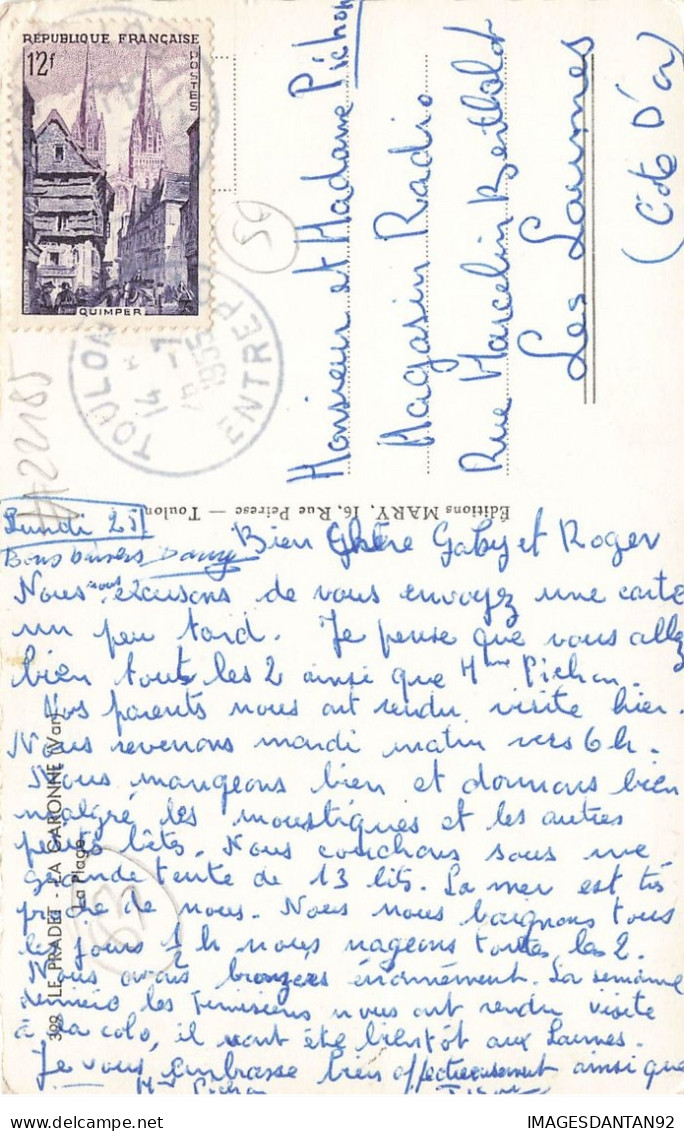 RÉPUBLIQUE FRANÇAISE
12f
POSTES
QUIMPER
TOULON
14 -7
1955
ENTREP
56
Monsieur et Madame Pichon
Magasin Radio
Rue Marcelin Berthelot
Les Laumes
(Cote D'or)
#22185
Éditions MARY, 16, Rue Peiresc — Toulon
Lundi 25
Bons baisers Dany
Bien Chère Gaby et Roger
Nous nous excusons de vous envoyez une carte
un peu tard. Je pense que vous allez
bien tous les 2 ainsi que Mme Pichon.
Nos parents nous ont rendu visite hier.
Nous revenons mardi matin vers 6 h.
Nous mangeons bien et dormons bien
malgré les moustiques et les autres
petites bêtes. Nous couchons sous une
grande tente de 13 lits. La mer est très
proche de nous. Nous nous baignons tous
les jours 1 h nous nageons toutes les 2.
Nous avons bronzées énormément. La semaine
dernière les nous ont rendu visite
à la colo, il vont être bientôt aux Laumes.
Je vous embrasse bien affectueusement ainsi que
Mme Pichon
399 LE PRADET - LA GARONNE (Var)
La Plage
IMAGESDANTAN92
delcampe.net